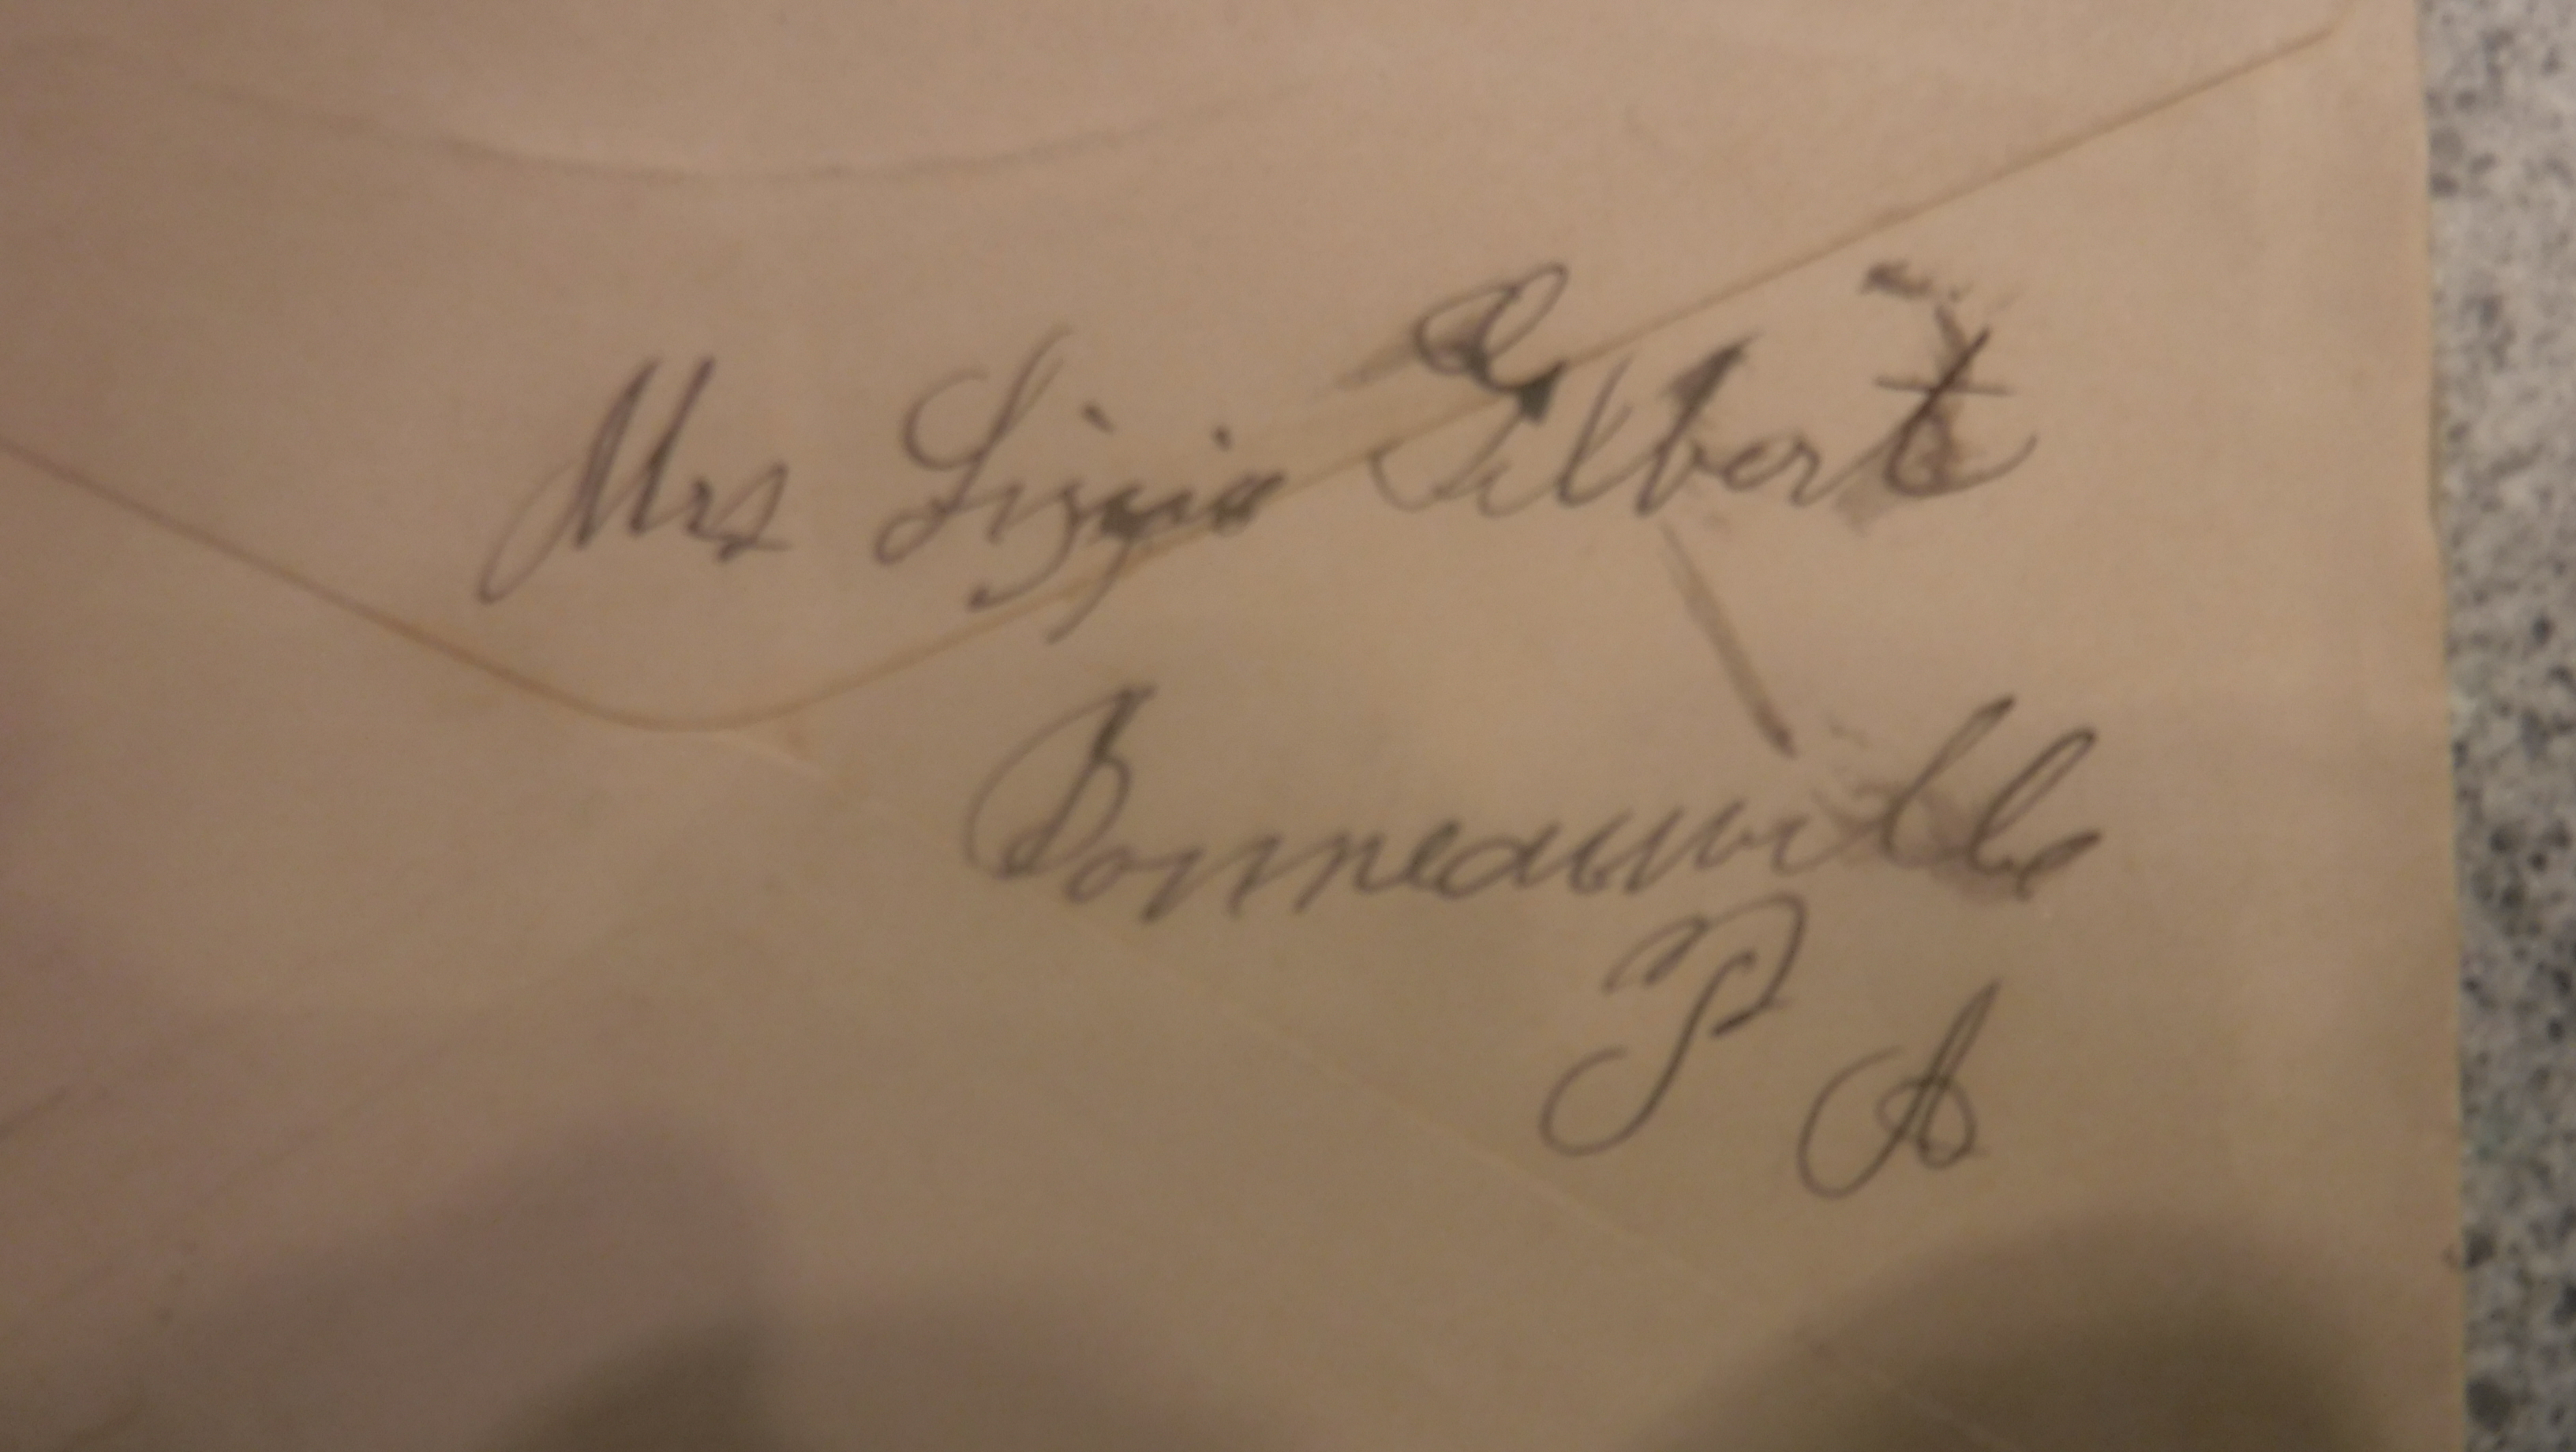 Mrs Lizzie Gilbert
Bonneauville
P A